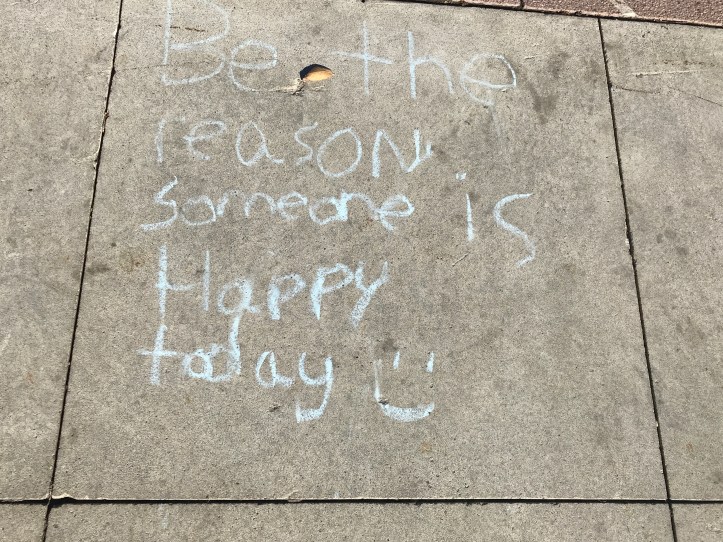 Be the
reason
someone is
Happy
today